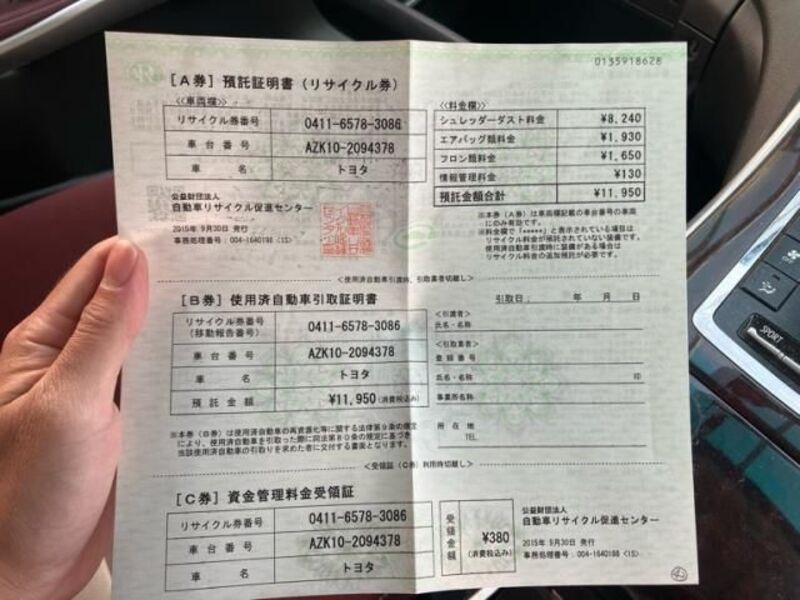 0135918628
[A券] 預託証明書（リサイクル券）
≪車両欄≫
リサイクル券番号 0411-6578-3086
車台番号 AZK10-2094378
車名 トヨタ
≪料金欄≫
シュレッダーダスト料金 ¥8,240
エアバッグ類料金 ¥1,930
フロン類料金 ¥1,650
情報管理料金 ¥130
預託金額合計 ¥11,950
公益財団法人
自動車リサイクル促進センター
2015年 9月30日 発行
事務処理番号：004-1640198 <1S>
※本券（A券）は車両欄記載の車台番号の車両
にのみ有効です。
※料金欄で「*****」と表示されている項目は
リサイクル料金が預託されていない装備です。
使用済自動車引渡時に装備がある場合は
リサイクル料金の追加預託が必要です。
＜使用済自動車引渡時、引取業者切離し＞
[B券] 使用済自動車引取証明書
引取日： 年 月 日
リサイクル券番号
（移動報告番号） 0411-6578-3086
車台番号 AZK10-2094378
車名 トヨタ
預託金額 ¥11,950(消費税込み)
＜引渡者＞
氏名・名称
＜引取業者＞
登録番号
氏名・名称 印
事業所名称
所在地
TEL.
※本券（B券）は使用済自動車の再資源化等に関する法律第9条の規定
により、使用済自動車を引取った際に同法第80条の規定に基づき
当該使用済自動車の引取りを求めた者に交付する書面となります。
＜受領証（C券）利用時切離し＞
[C券] 資金管理料金受領証
リサイクル券番号 0411-6578-3086
車台番号 AZK10-2094378
車名 トヨタ
受領金額 ¥380
(消費税込み)
公益財団法人
自動車リサイクル促進センター
2015年 9月30日 発行
事務処理番号：004-1640198 <1S>
SPORT